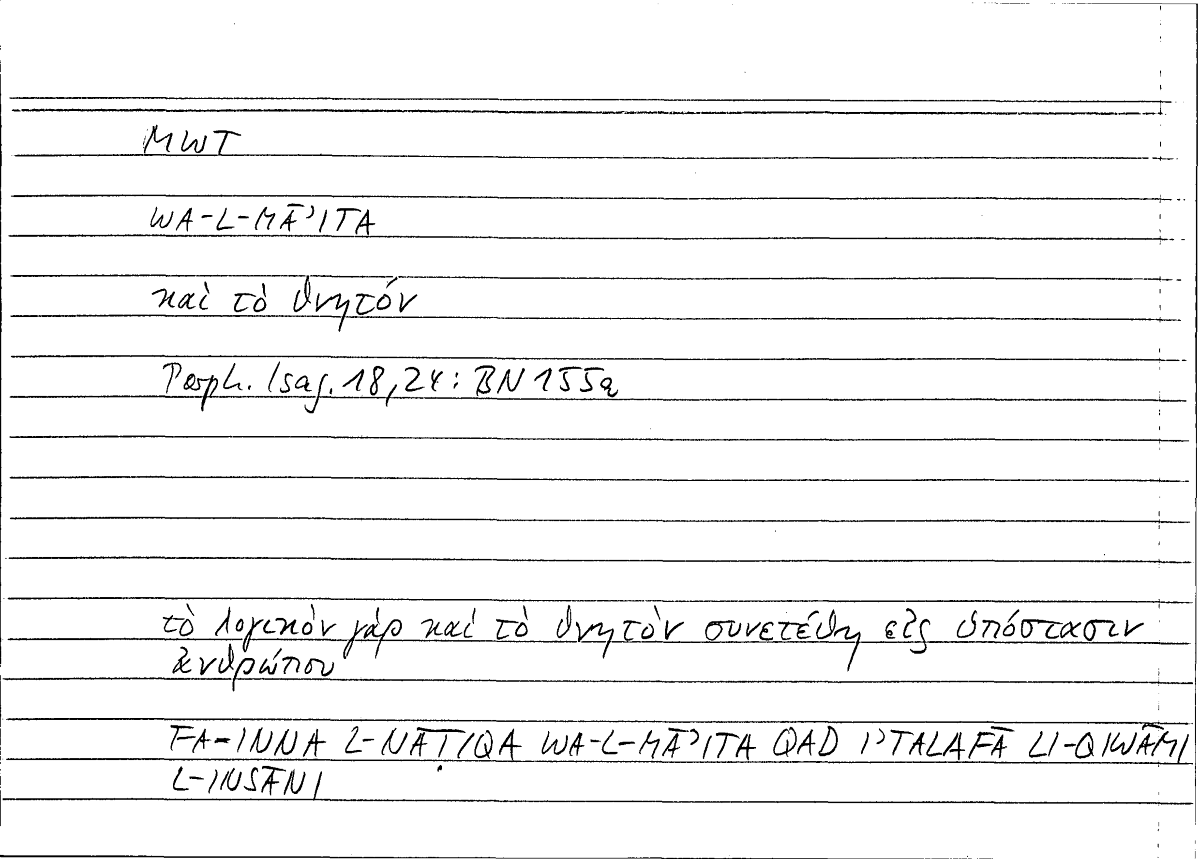 MWT
WA-L-MĀʾITA
καὶ τὸ θνητόν
Porph. Isag. 18,24: BN 155a
τὸ λογικὸν γάρ καὶ τὸ θνητὸν συνετέθη εἰς ὑπόστασιν
ἀνθρώπου
FA-INNA L-NĀṬIQA WA-L-MĀʾITA QAD IʾTALAFĀ LI-QIWĀMI
L-INSĀNI